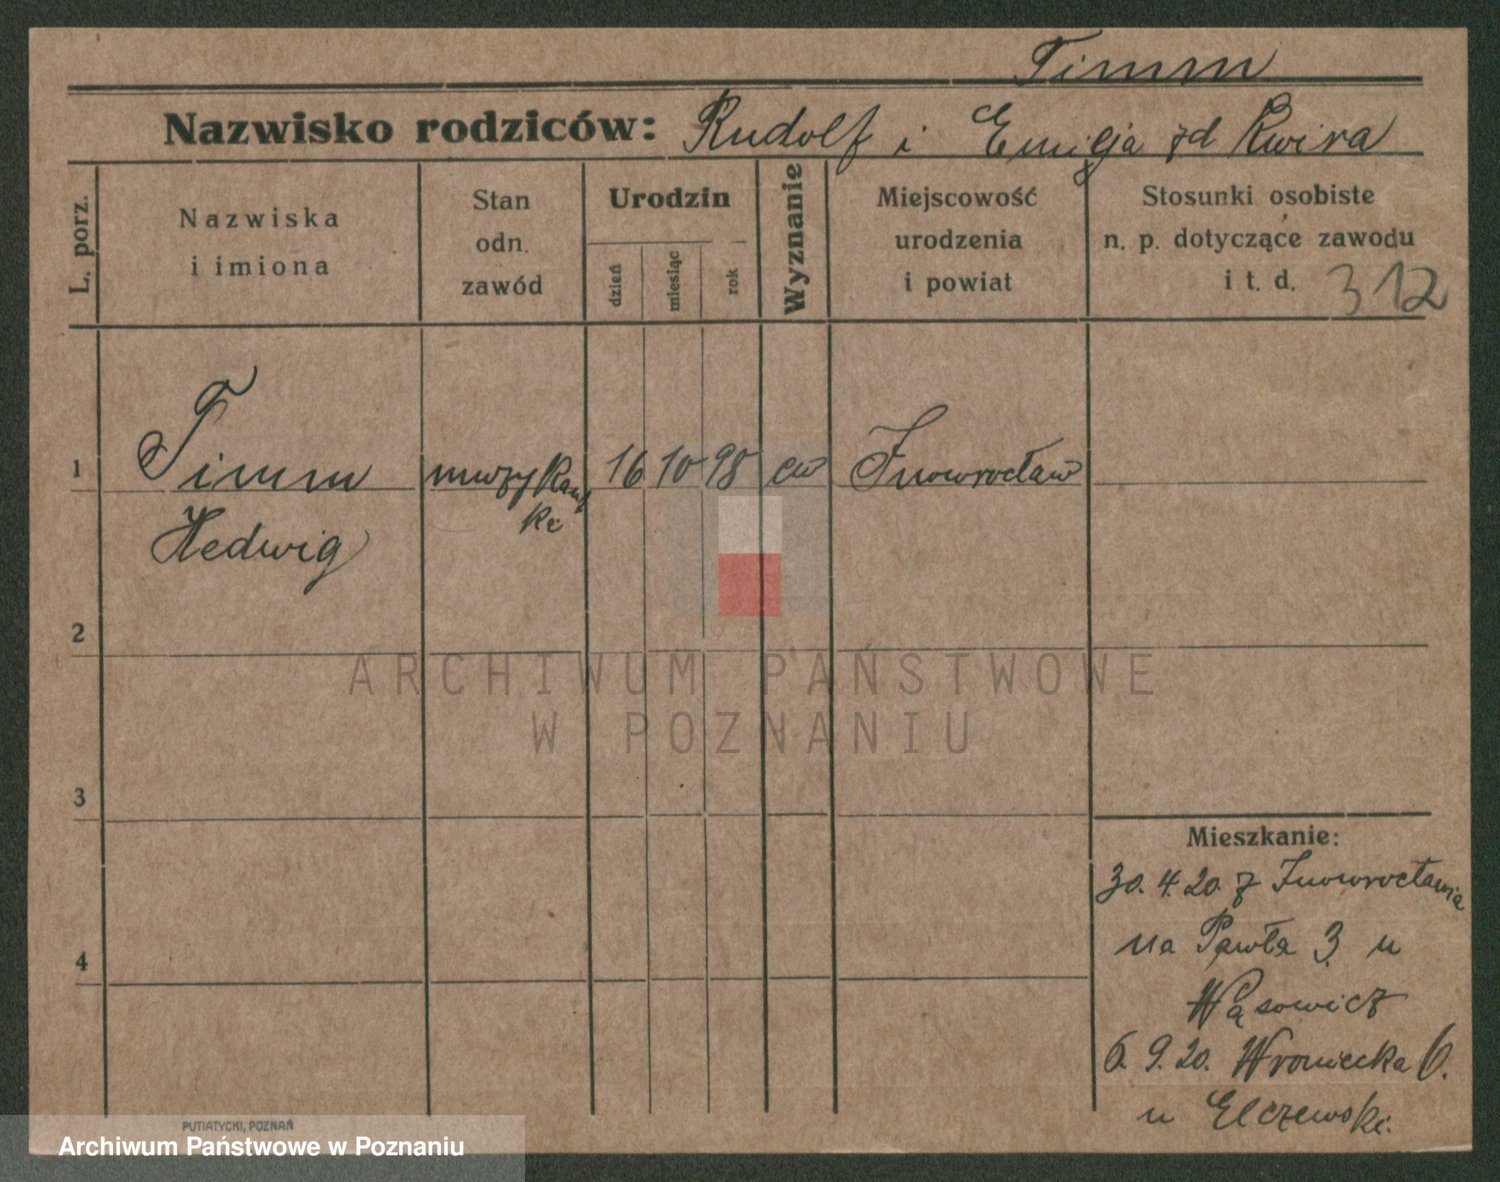 Timm
Nazwisko rodziców: Rudolf i Emilja zd Kwira
L. porz.
Nazwiska
i imiona
Stan
odn.
zawód
Urodzin
dzień
miesiąc
rok
Wyznanie
Miejscowość
urodzenia
i powiat
Stosunki osobiste
n. p. dotyczące zawodu
i t. d. 312
1 Timm muzykant 16 10 98 ew Inowrocław
ki
Hedwig
2
ARCHIWUM PAŃSTWOWE
W POZNANIU
3
Mieszkanie:
30. 4. 20. z Inowrocławia
na Pawła 3. u
Wąsowicz
4
6. 9. 20. Wroniecka 6.
u Elczewski.
PUTIATYCKI, POZNAŃ
Archiwum Państwowe w Poznaniu